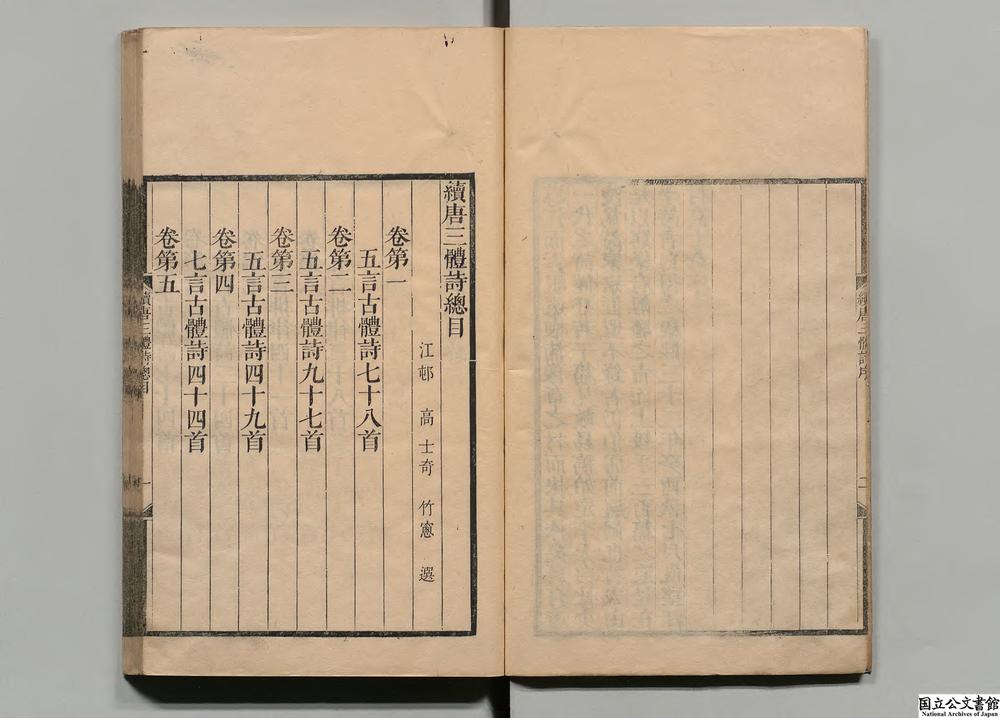 續唐三體詩序
二
續唐三體詩總目
江邨 高士奇 竹窻 選
卷第一
五言古體詩七十八首
卷第二
五言古體詩九十七首
卷第三
五言古體詩四十九首
卷第四
七言古體詩四十四首
卷第五
續唐三體詩總目
一
国立公文書館
National Archives of Japan